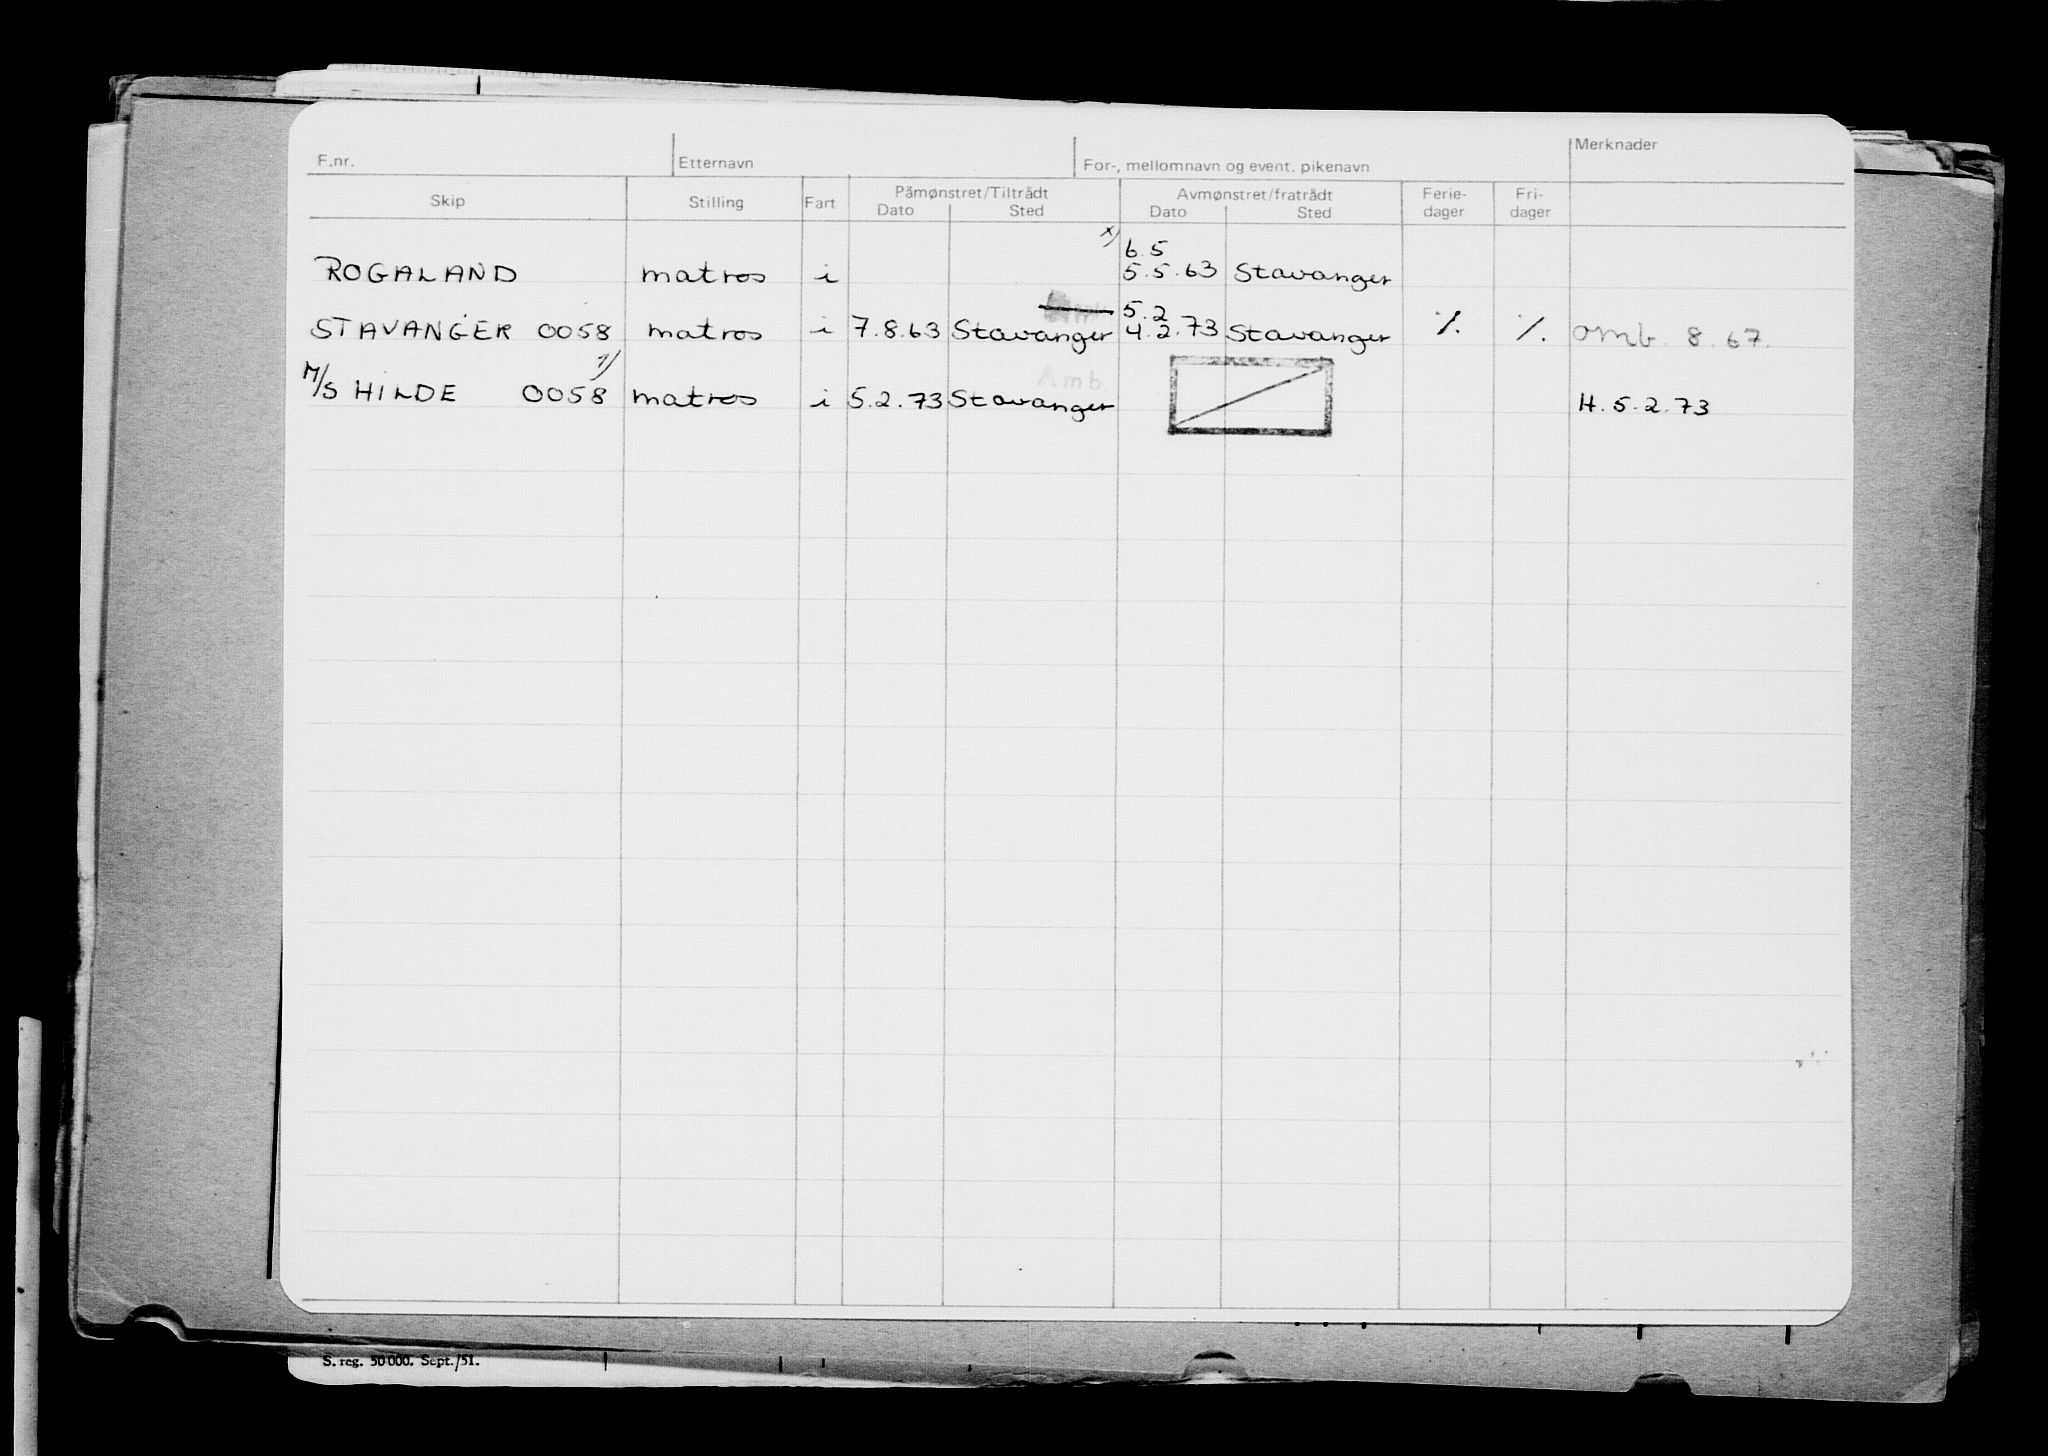 F.nr. Etternavn For-, mellomnavn og event. pikenavn Merknader
Skip Stilling Fart Påmønstret/Tiltrådt Avmønstret/fratrådt Ferie- Fri-
Dato Sted Dato Sted dager dager
x) 6.5
ROGALAND matros i 5.5.63 Stavanger
5.2
STAVANGER 0058 matros i 7.8.63 Stavanger 4.2.73 Stavanger ٪. ٪. omb. 8.67.
1) Amb.
M/S HILDE 0058 matros i 5.2.73 Stavanger H. 5.2.73
S. reg. 50 000. Sept./51.